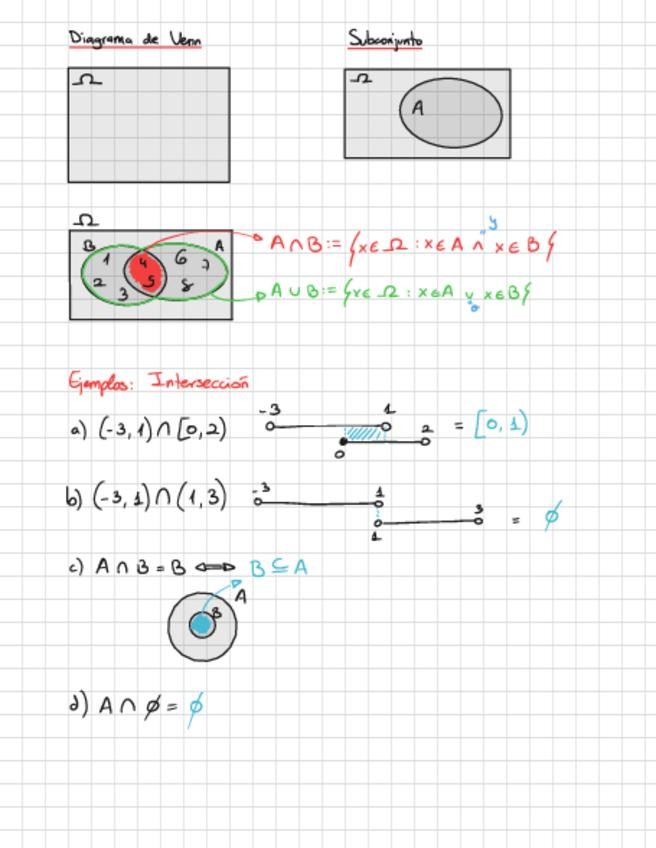 Diagrama de Venn
Subconjunto
Ω
Ω
A
Ω
B
A
1
4
6
7
2
5
8
3
y
A ∩ B := {x ∈ Ω : x ∈ A ∧ x ∈ B}
A ∪ B := {x ∈ Ω : x ∈ A ∨ x ∈ B}
o
Ejemplos: Intersección
-3 1
a) (-3, 1) ∩ [0, 2) 2 = [0, 1)
0
-3 1
b) (-3, 1) ∩ (1, 3) 3 = ∅
1
c) A ∩ B = B ⟺ B ⊆ A
A
B
d) A ∩ ∅ = ∅